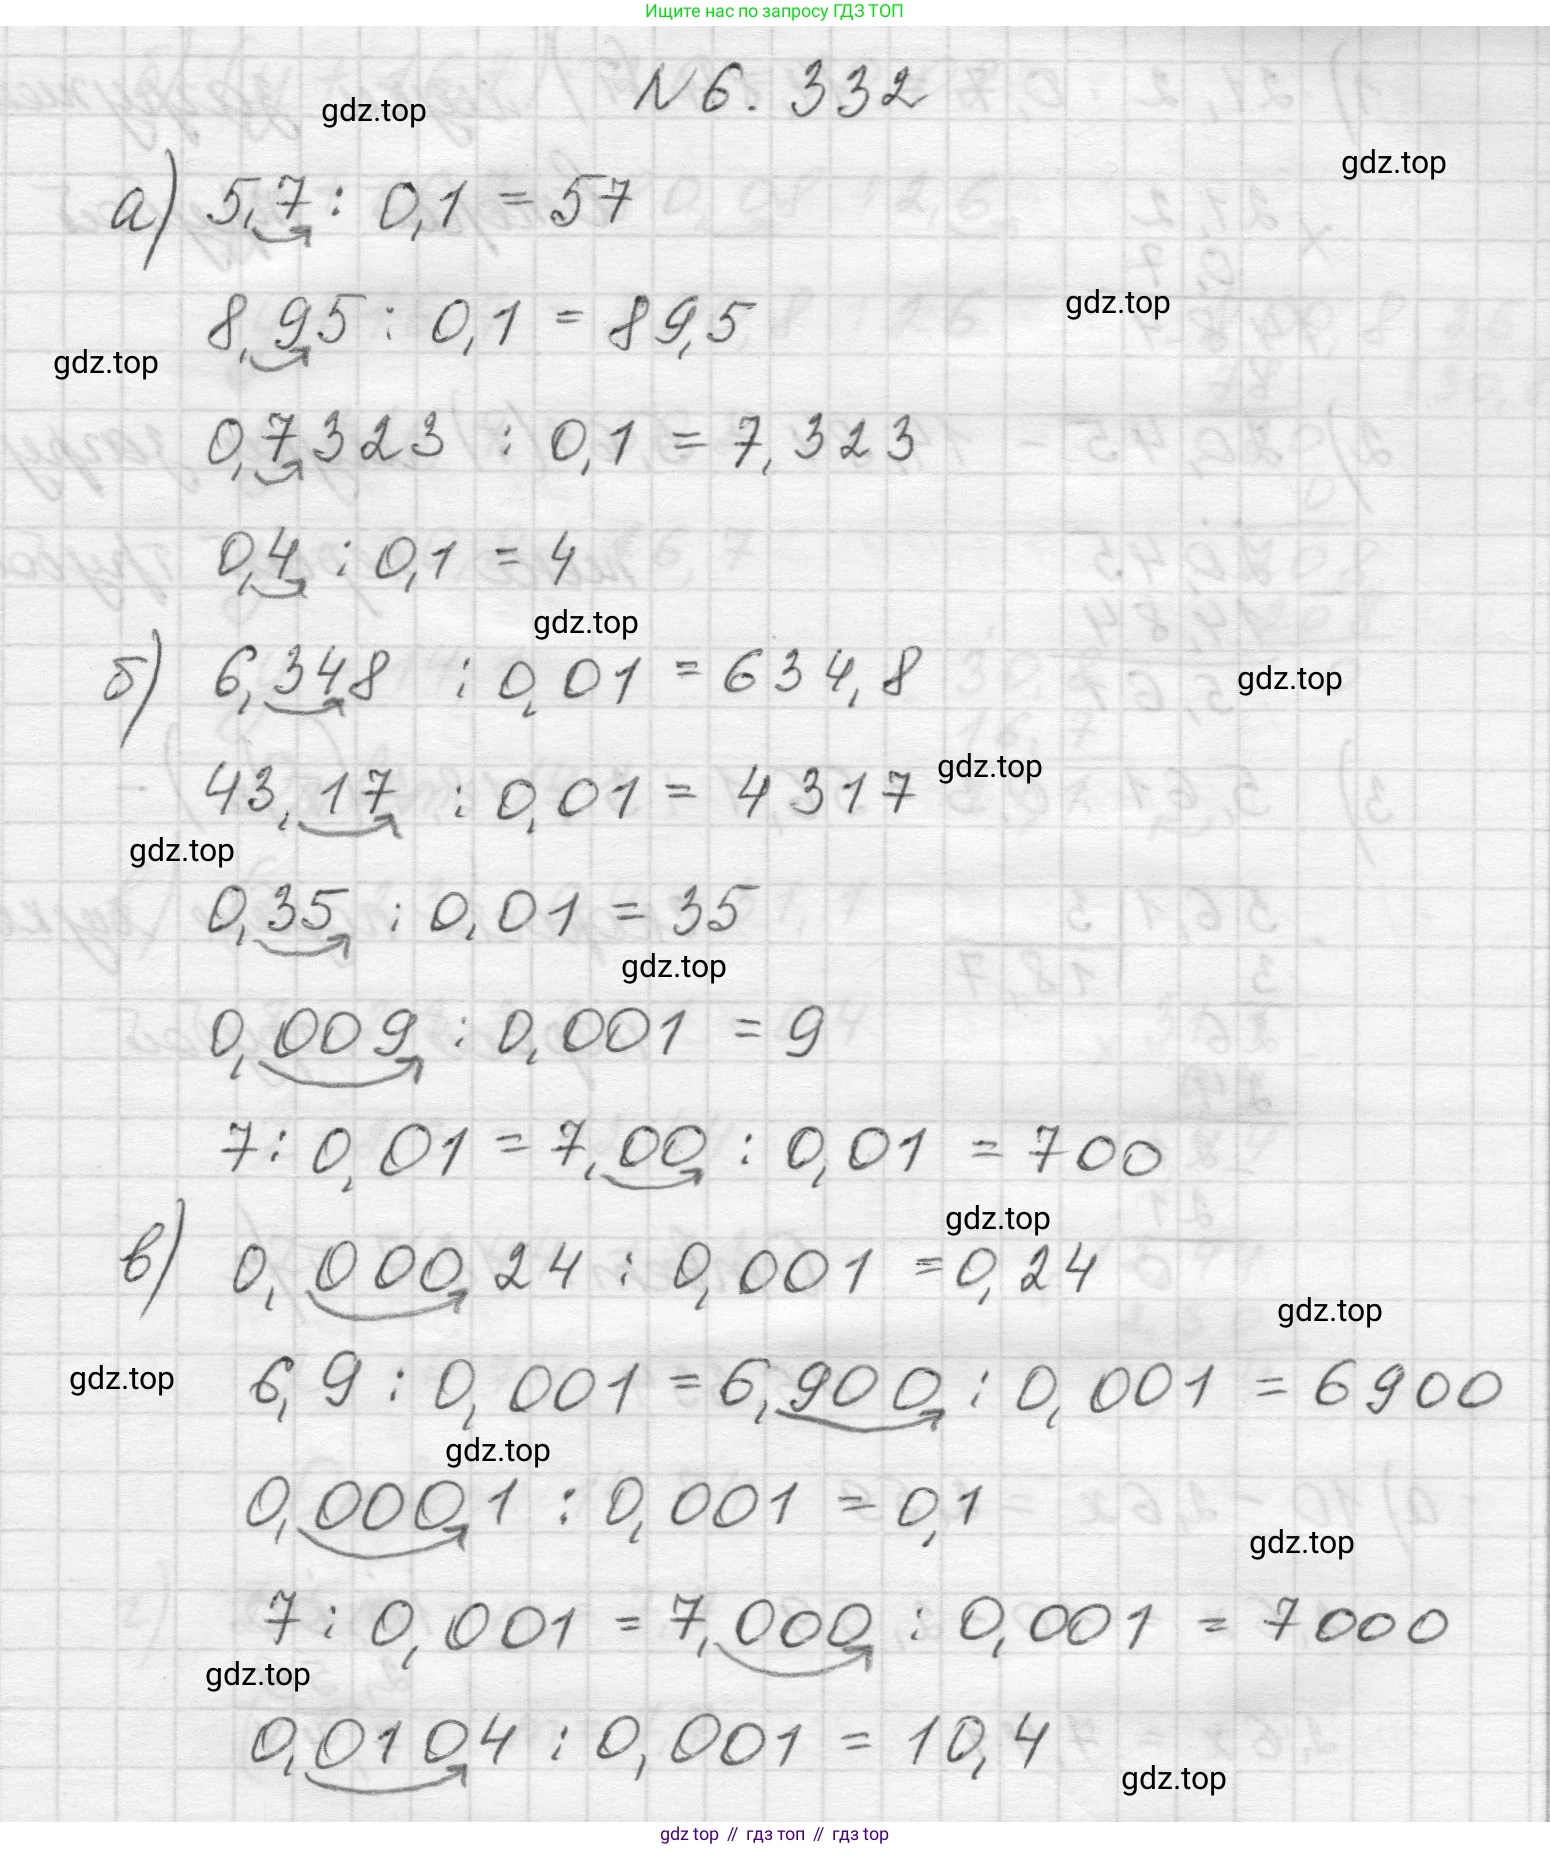 Ищите нас по запросу ГДЗ ТОП
№6.332
gdz.top
gdz.top
а) 5,7 : 0,1 = 57
8,95 : 0,1 = 89,5
gdz.top
gdz.top
0,7323 : 0,1 = 7,323
0,4 : 0,1 = 4
gdz.top
б) 6,348 : 0,01 = 634,8
gdz.top
43,17 : 0,01 = 4317
gdz.top
gdz.top
0,35 : 0,01 = 35
gdz.top
0,009 : 0,001 = 9
7 : 0,01 = 7,00 : 0,01 = 700
gdz.top
в) 0,00024 : 0,001 = 0,24
gdz.top
gdz.top
6,9 : 0,001 = 6,900 : 0,001 = 6900
gdz.top
0,0001 : 0,001 = 0,1
gdz.top
7 : 0,001 = 7,000 : 0,001 = 7000
gdz.top
0,0104 : 0,001 = 10,4
gdz.top
gdz top // гдз топ // гдз top